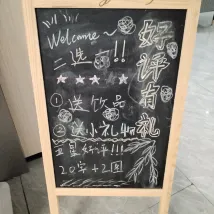 Welcome~
二选一!!
好评有礼
★ ★ ★ ★
①送饮品
②送小礼物
五星好评!!!
20字+2图